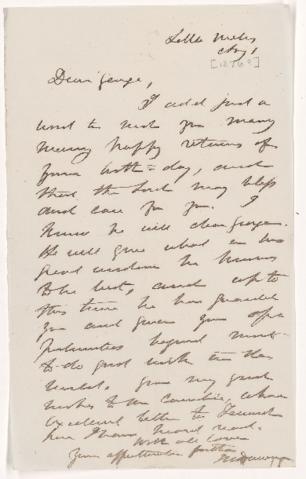 Aug 1
[1876?]
Dear George,
I add just a
word to wish you many
many happy returns of
your birth-day, and
that the Lord may bless
and care for you. I
know he will dear George.
He will give what in his
great wisdom he knows
to be best, and up to
this time he has guarded
you and given you opp
ortunities beyond most
to do good with in the
world. Give my good
wishes to the
excellent letter to
here I have heard read.
With all love
Your affectionate